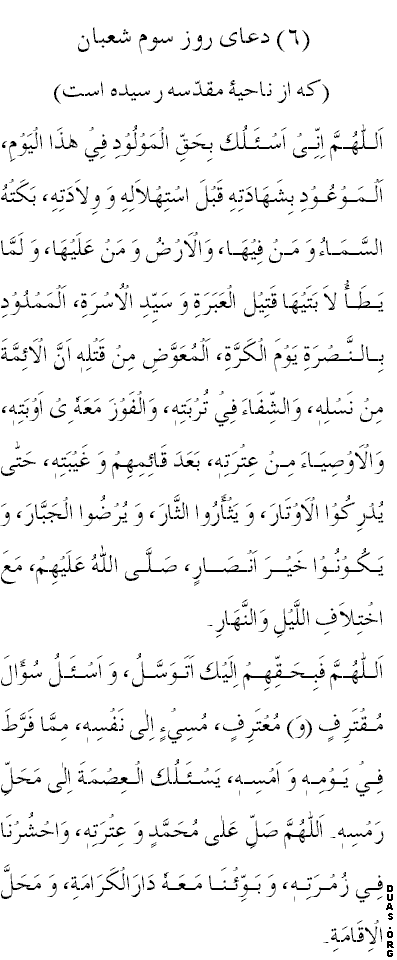 (٦) دعای روز سوم شعبان
(که از ناحیهٔ مقدّسه رسیده است)
اَللّٰهُمَّ اِنِّیْ اَسْئَلُكَ بِحَقِّ الْمَوْلُوْدِ فِیْ هٰذَا الْیَوْمِ،
اَلْمَوْعُوْدِ بِشَهَادَتِهِ قَبْلَ اسْتِهْلَالِهِ وَ وِلَادَتِهِ، بَكَتْهُ
السَّمَاءُ وَ مَنْ فِیْهَا، وَالْاَرْضُ وَ مَنْ عَلَیْهَا، وَ لَمَّا
یَطَأْ لَا بَتَیْهَا قَتِیْلِ الْعَبَرَةِ وَ سَیِّدِ الْاُسْرَةِ، اَلْمَمْدُوْدِ
بِالنُّصْرَةِ یَوْمَ الْكَرَّةِ، اَلْمُعَوَّضِ مِنْ قَتْلِهٖ اَنَّ الْاَئِمَّةَ
مِنْ نَسْلِهٖ، وَالشِّفَاءَ فِیْ تُرْبَتِهٖ، وَالْفَوْزَ مَعَهٗ فِیْ اَوْبَتِهٖ،
وَالْاَوْصِیَاءَ مِنْ عِتْرَتِهٖ، بَعَدَ قَائِمِهِمْ وَ غَیْبَتِهٖ، حَتّٰی
یُدْرِكُوْا الْاَوْتَارَ، وَ یَثْأَرُوا الثَّارَ، وَ یُرْضُوا الْجَبَّارَ، وَ
یَكُوْنُوْا خَیْرَ اَنْصَارٍ، صَلَّی اللّٰهُ عَلَیْهِمْ، مَعَ
اخْتِلَافِ اللَّیْلِ وَالنَّهَارِ۔
اَللّٰهُمَّ فَبِحَقِّهِمْ اِلَیْكَ اَتَوَسَّلُ، وَ اَسْئَلُ سُؤَالَ
مُقْتَرِفٍ (وَ) مُعْتَرِفٍ، مُسِیْءٍ اِلٰی نَفْسِهٖ، مِمَّا فَرَّطَ
فِیْ یَوْمِهٖ وَ اَمْسِهٖ، یَسْئَلُكَ الْعِصْمَةَ اِلٰی مَحَلِّ
رَمْسِهٖ۔ اَللّٰهُمَّ صَلِّ عَلٰی مُحَمَّدٍ وَ عِتْرَتِهٖ، وَاحْشُرْنَا
فِی زُمْرَتِهٖ، وَ بَوِّئْنَا مَعَهٗ دَارَ الْكَرَامَةِ، وَ مَحَلَّ
الْاِقَامَةِ۔
DUAS.ORG